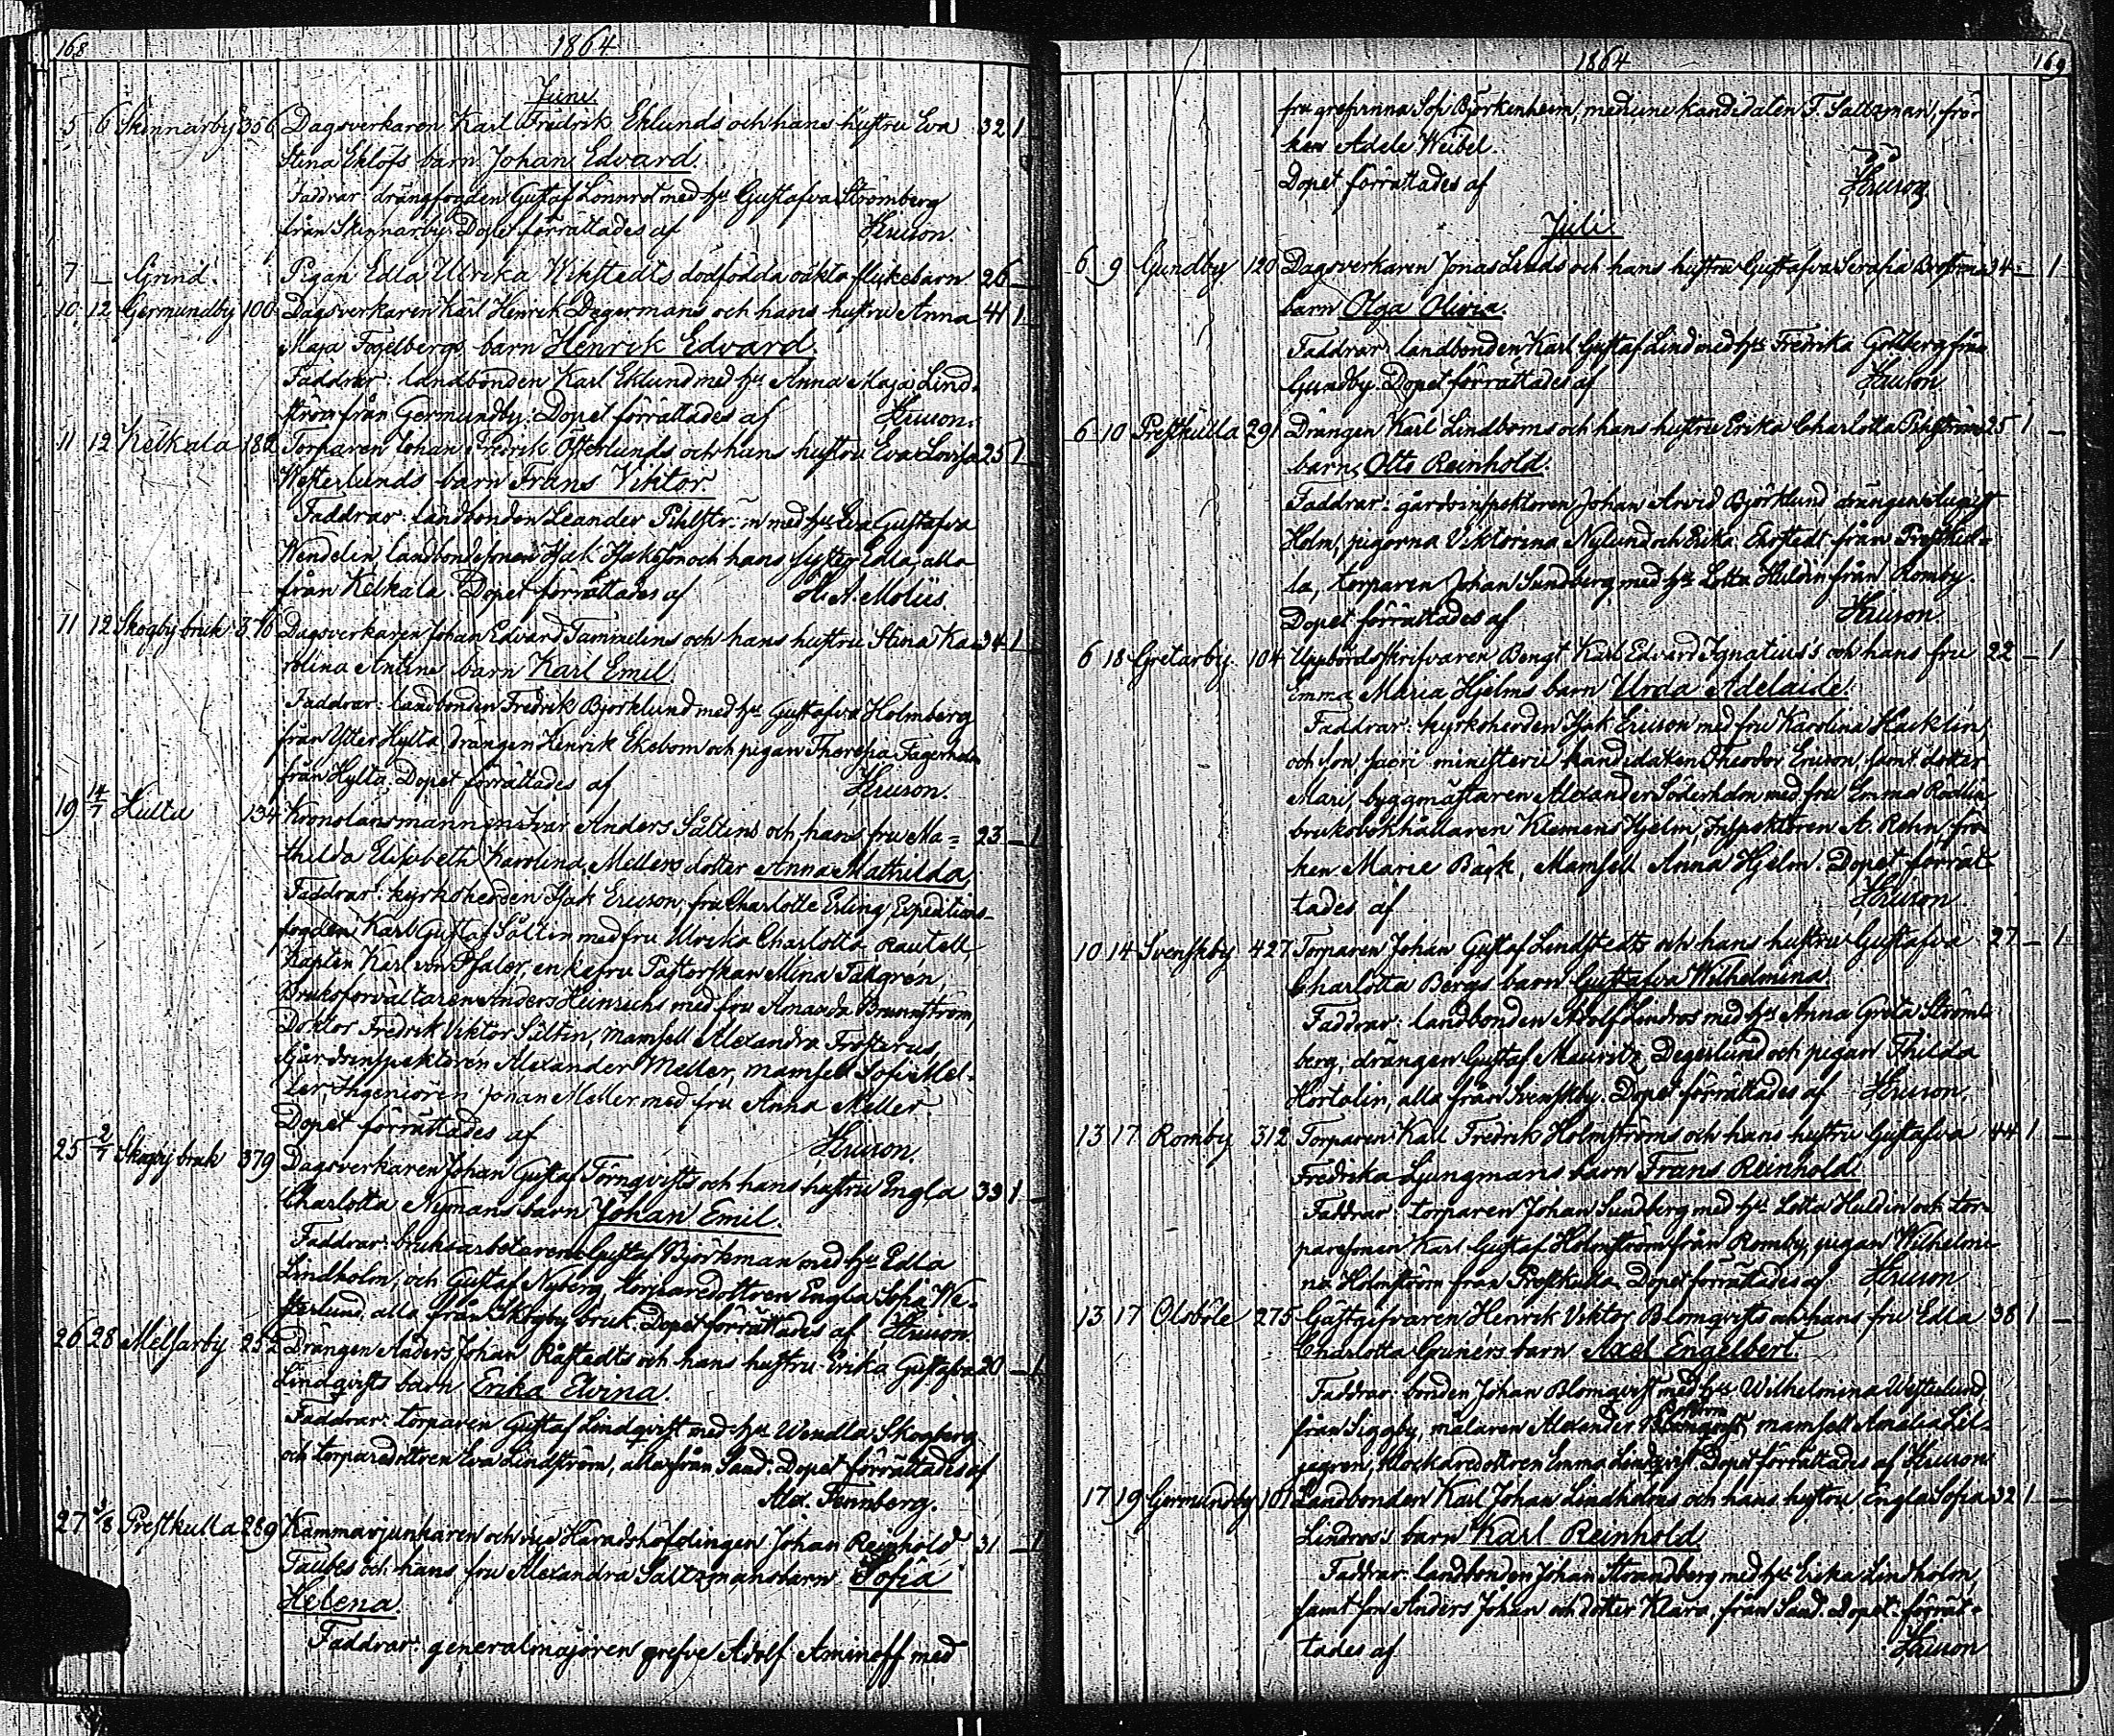 168 1864
Juni.
5 6 Skinnarby 356 Dagsverkaren Karl Fredrik Eklunds och hans hustru Eva 32 1 _
Stina Eklöfs barn Johan Edvard.
Faddrar: drängfogden Gustaf Lönnrot med hu Gustafva Strömberg
från Skinnarby. Dopet förrättades af Ericson.
7 _ Grind. Pigan Edla Ulrika Wikstedts dödfödda oäkta flickebarn 26 _
10 12 Germundby 100 Dagsverkaren Karl Henrik Degermans och hans hustru Anna 41 1 _
Maja Fogelbergs barn Henrik Edvard.
Faddrar: landbonden Karl Eklund med hu Anna Maja Lind-
ström från Germundby. Dopet förrättades af Ericson.
11 12 Kelkala 182 Torparen Johan Fredrik Österlunds och hans hustru Eva Lovisa 25 1 _
Westerlunds barn Frans Viktor
Faddrar: landbonden Leander Pihlström med hu Eva Gustafva
Wendelin, landbondesonen Isak Isaksson och hans syster Edla, alla
från Kelkala. Dopet förrättades af A. Moliis.
11 12 Skogby bruk 376 Dagsverkaren Johan Edvard Tammelins och hans hustru Stina Ka- 34 1 _
rolina Antins barn Karl Emil.
Faddrar: landbonden Fredrik Björklund med hu Gustafva Holmberg
från Ytter Hylta, drängen Henrik Ekebom och pigan Theresia Fagerholm
från Hylta. Dopet förrättades af Ericson.
19 14/7 Hulta 134 Kronolänsmannen Ivar Anders Sältins och hans fru Ma- 23 _ 1
thilda Elisabeth Karolina Mellers dotter Anna Mathilda.
Faddrar: kyrkoherden Isak Ericson, fru Charlotte Erling, Expeditions-
fogden Karl Gustaf Sältin med fru Ulrika Charlotta Rautell,
Kapten Karl von Pfaler, enkefru Pastorskan Mina Takgren,
Bruksförvaltaren Anders Heinrichs med fru Amanda Brunnström,
Doktor Fredrik Viktor Sältin, Mamsell Alexandra Frosterus,
Gårdsinspektoren Alexander Meller, mamsell Sofi Mel-
ler, Ingeniören Johan Meller med fru Anna Meller.
Dopet förrättades af Ericson.
25 2/7 Skogby bruk 379 Dagsverkaren Johan Gustaf Törnqvists och hans hustru Engla 33 1 _
Charlotta Nymans barn Johan Emil.
Faddrar: bruksarbetarene Gustaf Björkman med hu Edla
Lindholm, och Gustaf Nyberg, torparedottren Engla Sofia We-
sterlund, alla från Skogby bruk. Dopet förrättades af Ericson.
26 28 Melsarby 252 Drängen Anders Johan Råstedts och hans hustru Erika Gustafva 20 _ 1
Lindqvists barn Erika Elvina.
Faddrar: torparen Gustaf Lindqvist med hu Wendla Skogberg
och torparedottren Eva Lindström, alla från Sand. Dopet förrättades af
Alex. Fennberg.
27 /8 Prestkulla 289 Kammarjunkaren och vice Häradshöfdingen Johan Reinhold 31 _ 1
Taubes och hans fru Alexandra Saltzmans barn Sofia
Helena.
Faddrar: generalmajoren grefve Adolf Aminoff med
1864 169
fru grefvinna Sofi Björkenheim, medicine kandidaten F. Saltzman, frö-
ken Adele Weibel.
Dopet förrättades af Ericson
Juli.
6 9 Gundby 120 Dagsverkaren Jonas Linds och hans hustru Gustafva Serafia Broströms 34 _ 1
barn Olga Olivia.
Faddrar: landbonden Karl Gustaf Lind med hu Fredrika Grönberg från
Gundby. Dopet förrättades af Ericson
6 10 Prestkulla 291 Drängen Karl Lindboms och hans hustru Erika Charlotta Pihlströms 25 1 _
barn Otto Reinhold.
Faddrar: gårdsinspektoren Johan Arvid Björklund drängen August
Holm, pigorna Viktorina Nylund och Erika Ekstedt från Prestkul-
la, torparen Johan Sundberg med hu Lotta Huldin från Romby.
Dopet förrättades af Ericson.
6 18 Gretarby 104 Uppbördsskrifvaren Bengt Karl Edvard Ignatius's och hans fru 22 _ 1
Emma Maria Hjelms barn Urda Adelaide.
Faddrar: kyrkoherden Isak Ericson med fru Karolina Häcklin,
och son, sacri ministerii kandidaten Theodor Ericson, samt dotter
Mari, byggmästaren Alexander Söderholm med fru Emma Rödlin
bruksbokhållaren Klemens Hjelm, Inspektoren A. Rehn, frö-
ken Marie Bäck, Mamsell Anna Hjelm. Dopet förrät-
tades af Ericson
10 14 Svenskby 427 Torparen Johan Gustaf Lindstedts och hans hustru Gustafva 27 _ 1
Charlotta Bergs barn Gustafva Wilhelmina
Faddrar: landbonden Adolf Lindros med hu Anna Greta Ström-
berg, drängen Gustaf Mauritz Degerlund och pigan Thilda
Hortalin, alla från Svenskby. Dopet förrättades af Ericson.
13 17 Romby 312 Torparen Karl Fredrik Holmströms och hans hustru Gustafva 44 1 _
Fredrika Ljungmans barn Frans Reinhold.
Faddrar: torparen Johan Sundberg med hu Lotta Huldin och tor-
paresonen Karl Gustaf Holmström från Romby, pigan Wilhelmi-
na Holmström från Prestkulla. Dopet förrättades af Ericson
13 17 Olsböle 275 Gästgifvaren Henrik Viktor Blomqvists och hans fru Edla 38 1 _
Charlotta Grunérs barn Axel Engelbert.
Faddrar: bonden Johan Blomqvist med hu Wilhelmina Westerlund
från Siggby, målaren Alexander mamsell Amalia Lil-
jegren, klockaredottren Emma Lindqvist. Dopet förrättades af Ericson
17 19 Germundby 101 Landbonden Karl Johan Lindholms och hans hustru Engla Sofia 32 1 _
Lindros's barn Karl Reinhold.
Faddrar: landbonden Johan Strandberg med hu Erika Lindholm,
samt son Anders Johan och dotter Klara från Sand. Dopet förrät-
tades af Ericson